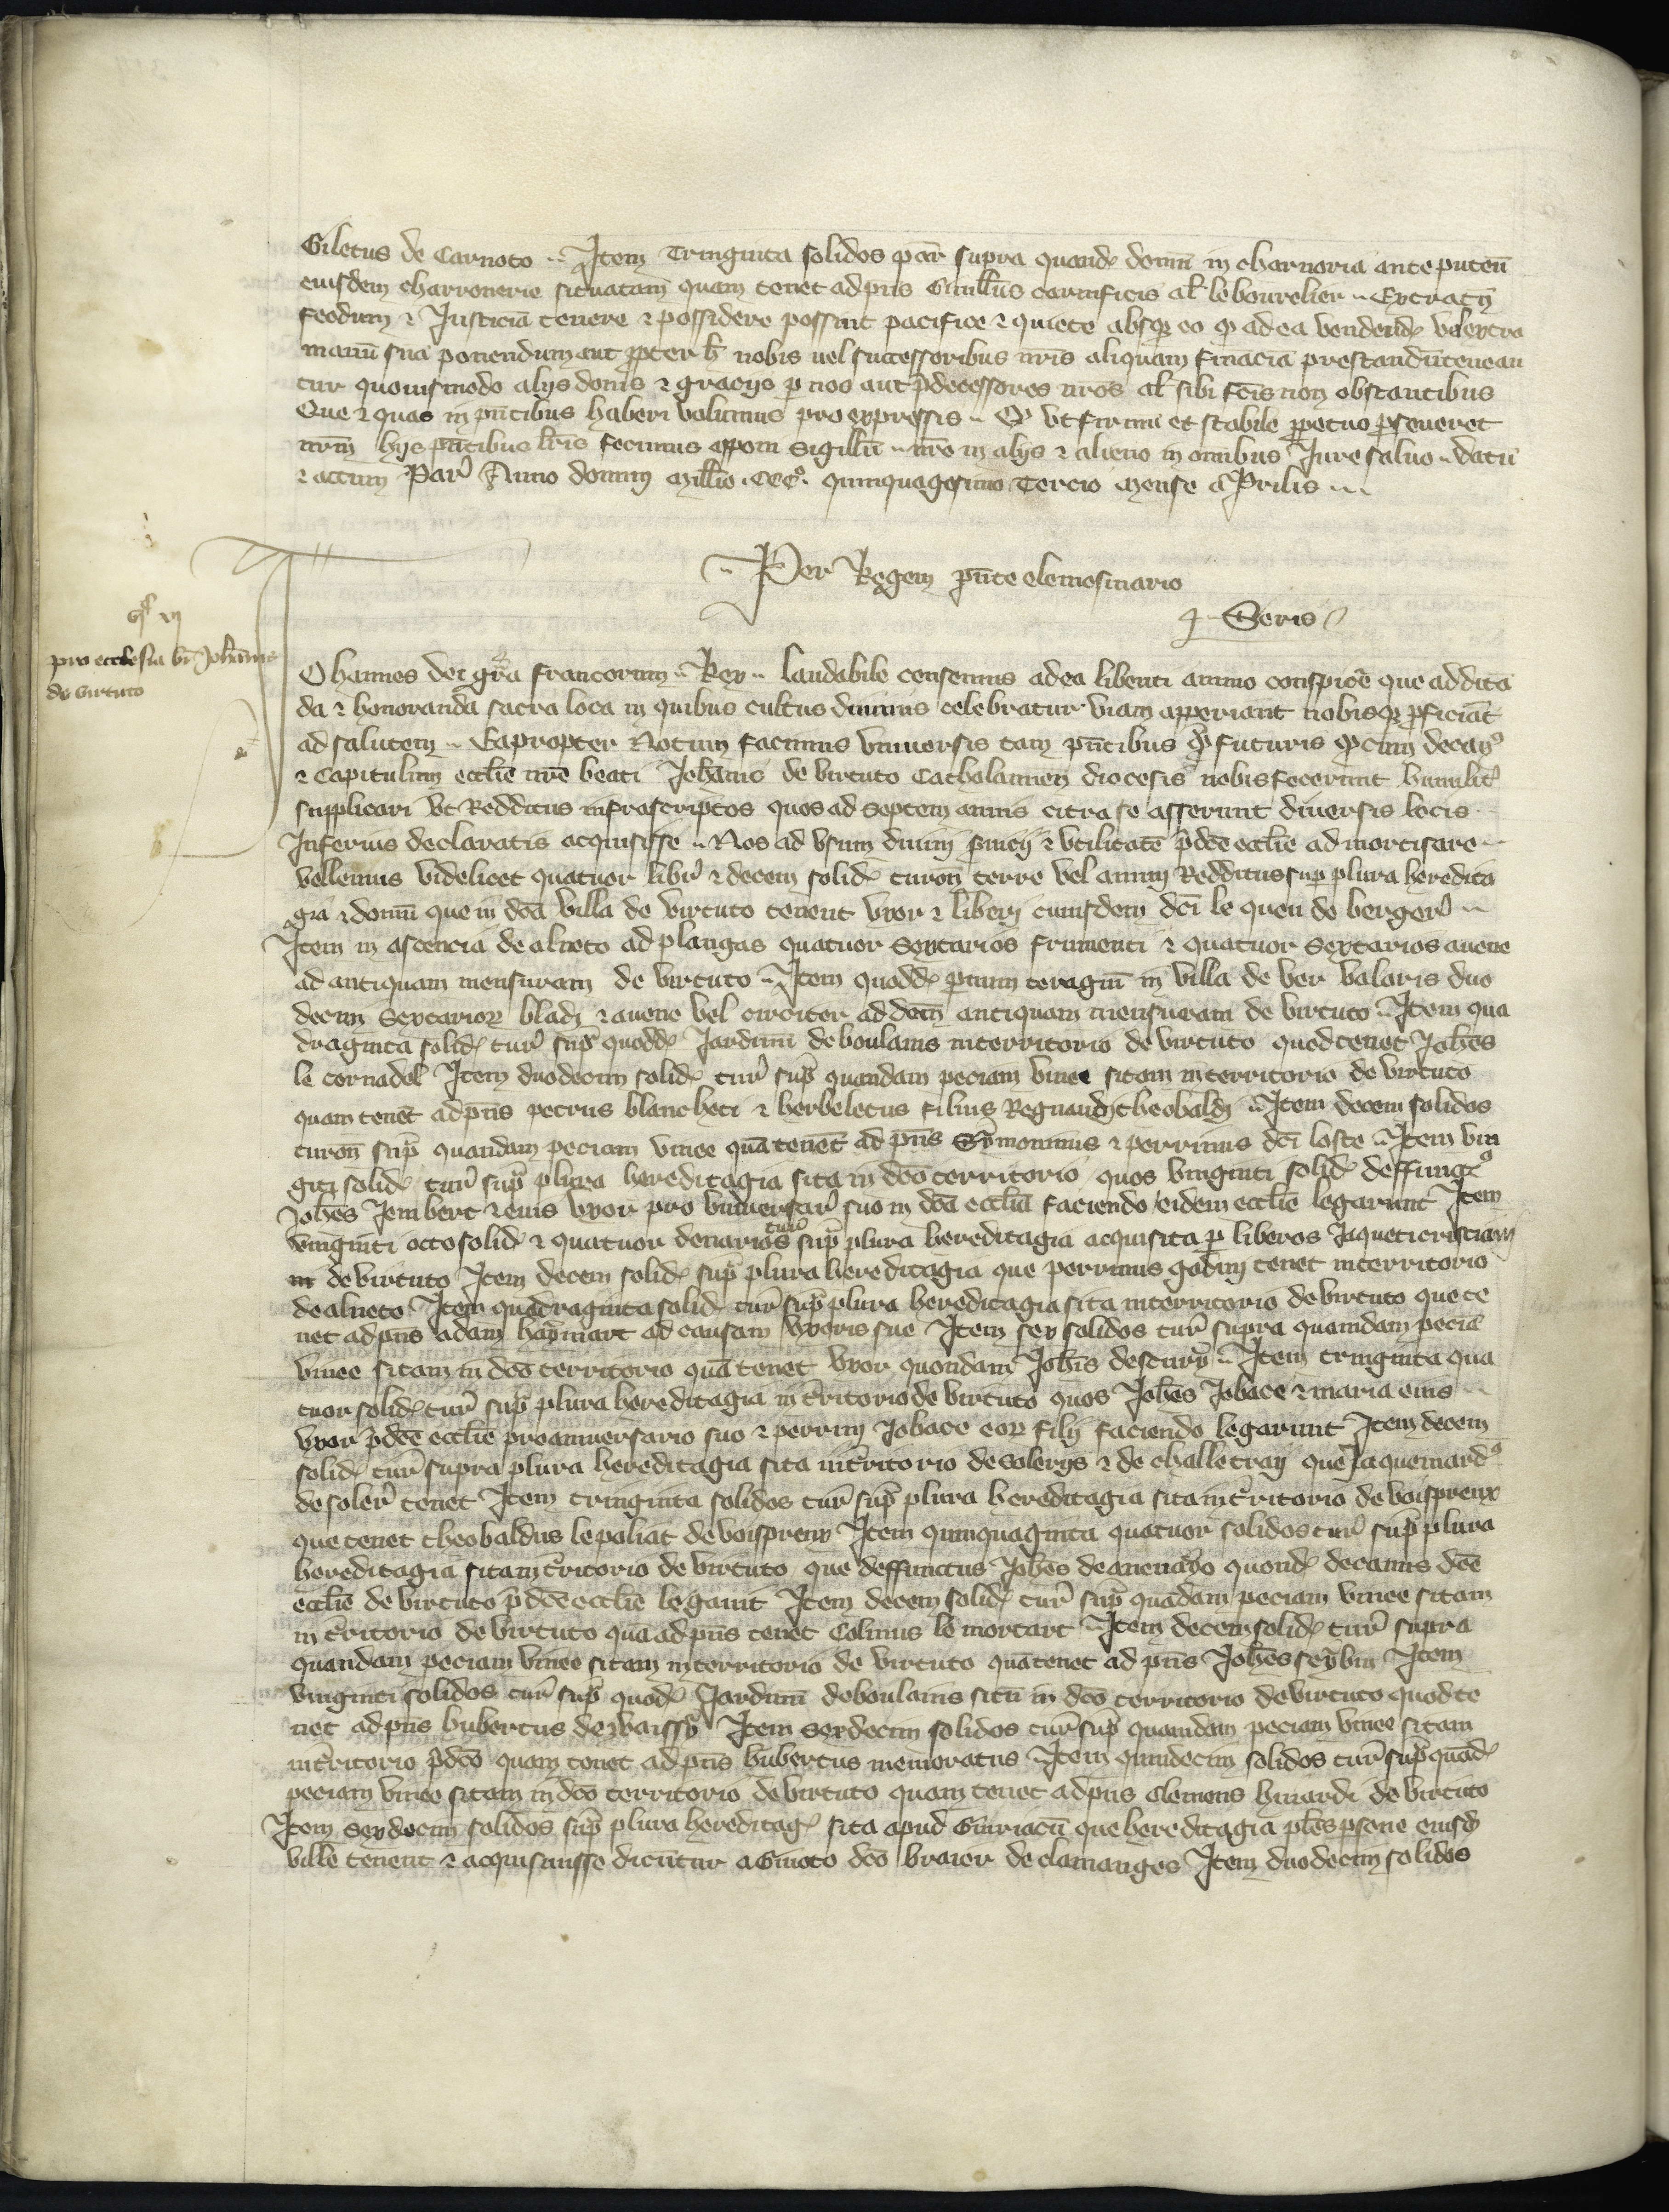 Giletus de Carnoto Item Tringinta solidos par̄ supra quand̄ domū in charnoria ante puteū
eiusdem charronerie situatam quam tenet ad p̄ns Guill̄us carnificis al̄ le bourelier Extra
feodum ⁊ Justiciā tenere ⁊ possidere possint pacifice ⁊ quiete absq̄ eo q̄ ad ea vendend̄ vel extra
manū suā ponendum aut p̄pter h̄ nobis uel successoribus n̄ris aliquam finaciā prestandū tenean
tur quouismodo alijs donis ⁊ gracijs p nos aut p̄decessores nros al̄ sibi f̄cis non obstantibus
Que ⁊ quas in p̄ntibus haberi volumus pro expressis Et vt firmū et stabile p̄petuo p̄seueret
nr̄m hijs p̄ntibus l̄ris fecimus appoñ sigillū nr̄o in alijs ⁊ alieno in omnibus Jure saluo datū
⁊ actum Par̄ Anno domini mill̄io CCCo quinquagesimo Tercio mense Aprilis
Per Regem p̄nte elemosinario
Seris
pro ecclesia bī Joh̄annis
de virtuto
Ohannes dei gr̄a francorum Rex laudabile censemus ad ea libenti animo conspic̄e que ad dita
da ⁊ honoranda sacra loca in quibus cultus diuinus celebratur viam apperiant nobisq̄ p̄ficiāt
ad salutem Eapropter Notum facimus vniuersis tam p̄ntibus q̄ futuris q̄ cum decan9
⁊ Capitulum eccl̄ie nr̄e beati Joh̄anis de virtuto Cathalaunen̄ diocesis nobis fecerunt humilit̄
supplicari vt Redditus infrascriptos quos ad septem annis citra se asserunt diuersis locis
Inferius declaratis acquisisse Nos ad vsum diuini s̄uicij ⁊ vtilitatē p̄dc̄e eccl̄ie admortisare
vellemus videlicet quatuor libr̄ ⁊ decem solid̄ turon̄ terre vel annui Redditus sup plura heredita
gia ⁊ domū que in dc̄a villa de virtuto tenent vxor ⁊ liberi cuiusdem dc̄i le queu de berger̄
Item in ascencia de alneto ad plangas quatuor Sextarios frumenti ⁊ quatuor Sextarios auene
ad antiquam mensuram de virtuto Item quodd̄ p̄uum teragiū in villa de ver valoris duo
decim Sextarior̄ bladi ⁊ auene vel circiter ad dc̄am antiquam mensuram de virtuto Item qua
draginta solid̄ tur̄ sup̄ quodd̄ Jardinū de boulains in territorio de virtuto quod tenet Joh̄es
le cornadel Item duodecim solid̄ tur̄ sup̄ quandam peciam vinee sitam in territorio de virtuto
quam tenēt ad p̄ns petrus blancheti ⁊ herbeletus filius Regnaudi theobaldi Item decem solidos
turon̄ sup̄ quandam peciam vinee quā tenēt ad p̄ns Symoninus ⁊ perrinus dc̄i loste Item vin
ginti solid̄ tur̄ sup̄ plura hereditagia sita in dc̄o territorio quos vinginti solid̄ deffunct9
Joh̄es Jembert ⁊ eius vxor pro vniuersar̄ suo in dc̄a eccl̄ia faciendo eidem eccl̄ie legarunt Item
vinginti octo solid̄ ⁊ quatuor denarios tur̄ sup̄ plura hereditagia acquisita p liberos Jaqueti cristiani
de virtuto Item decem solid̄ sup̄ plura hereditagia que perrinus godin tenet in territorio
de alneto Item quadraginta solid̄ tur̄ sup̄ plura hereditagia sita in territorio de virtuto que te
net ad p̄ns adam haymart ad causam vxoris sue Item sex solidos tur̄ supra quamdam peciā
vinee sitam in dc̄o territorio quā tenet vxor quondam Joh̄is descury Item tringinta qua
tuor solid̄ tur̄ sup̄ plura hereditagia in t̄ritorio de virtuto quos Joh̄es Jobace ⁊ maria eius
vxor p̄dc̄e eccl̄ie pro anniuersario suo ⁊ perrini Jobace eor̄ filij faciendo legarunt Item decem
solid̄ tur̄ supra plura hereditagia sita in t̄ritorio de solerijs ⁊ de challetray que Jaquemard9
de soler̄ tenet Item tringinta solidos tur̄ sup̄ plura hereditagia sita in t̄ritorio de voispreux
que tenet theobaldus le paliat de voispreux Item quinquaginta quatuor solidos tur̄ sup̄ plura
hereditagia sita in t̄ritorio de virtuto que deffunctus Joh̄es de auenayo quond̄ decanus dc̄e
eccl̄ie de virtuto p̄dc̄e eccl̄ie legauit Item decem solid̄ tur̄ sup̄ quādam peciam vinee sitam
in t̄ritorio de virtuto quā ad p̄ns tenet Colinus le mortart Item decem solid̄ tur̄ supra
quandam peciam vinee sitam in territorio de virtuto quā tenet ad p̄ns Joh̄es seybin Item
vinginti solidos tur̄ sup̄ quod̄ Jardinū de boulains sitū in dc̄o territorio de virtuto quod te
net ad p̄ns hubertus de waissy Item Sexdecim solidos tur̄ sup̄ quamdam peciam vinee sitam
in t̄ritorio p̄dc̄o quam tenet ad p̄ns hubertus memoratus Item quindecim solidos tur̄ sup̄ quād̄
peciam vinee sitam in dc̄o territorio de virtuto quam tenet ad p̄ns clemens huiardi de virtuto
Item Sexdecim solidos sup̄ plura hereditaḡ sita apud Giuriacū que hereditagia pl̄es p̄sone eiusd̄
ville tenent ⁊ acquisiuisse dicūtur a Guioto dc̄o braier de clamanges Item duodecim solidos